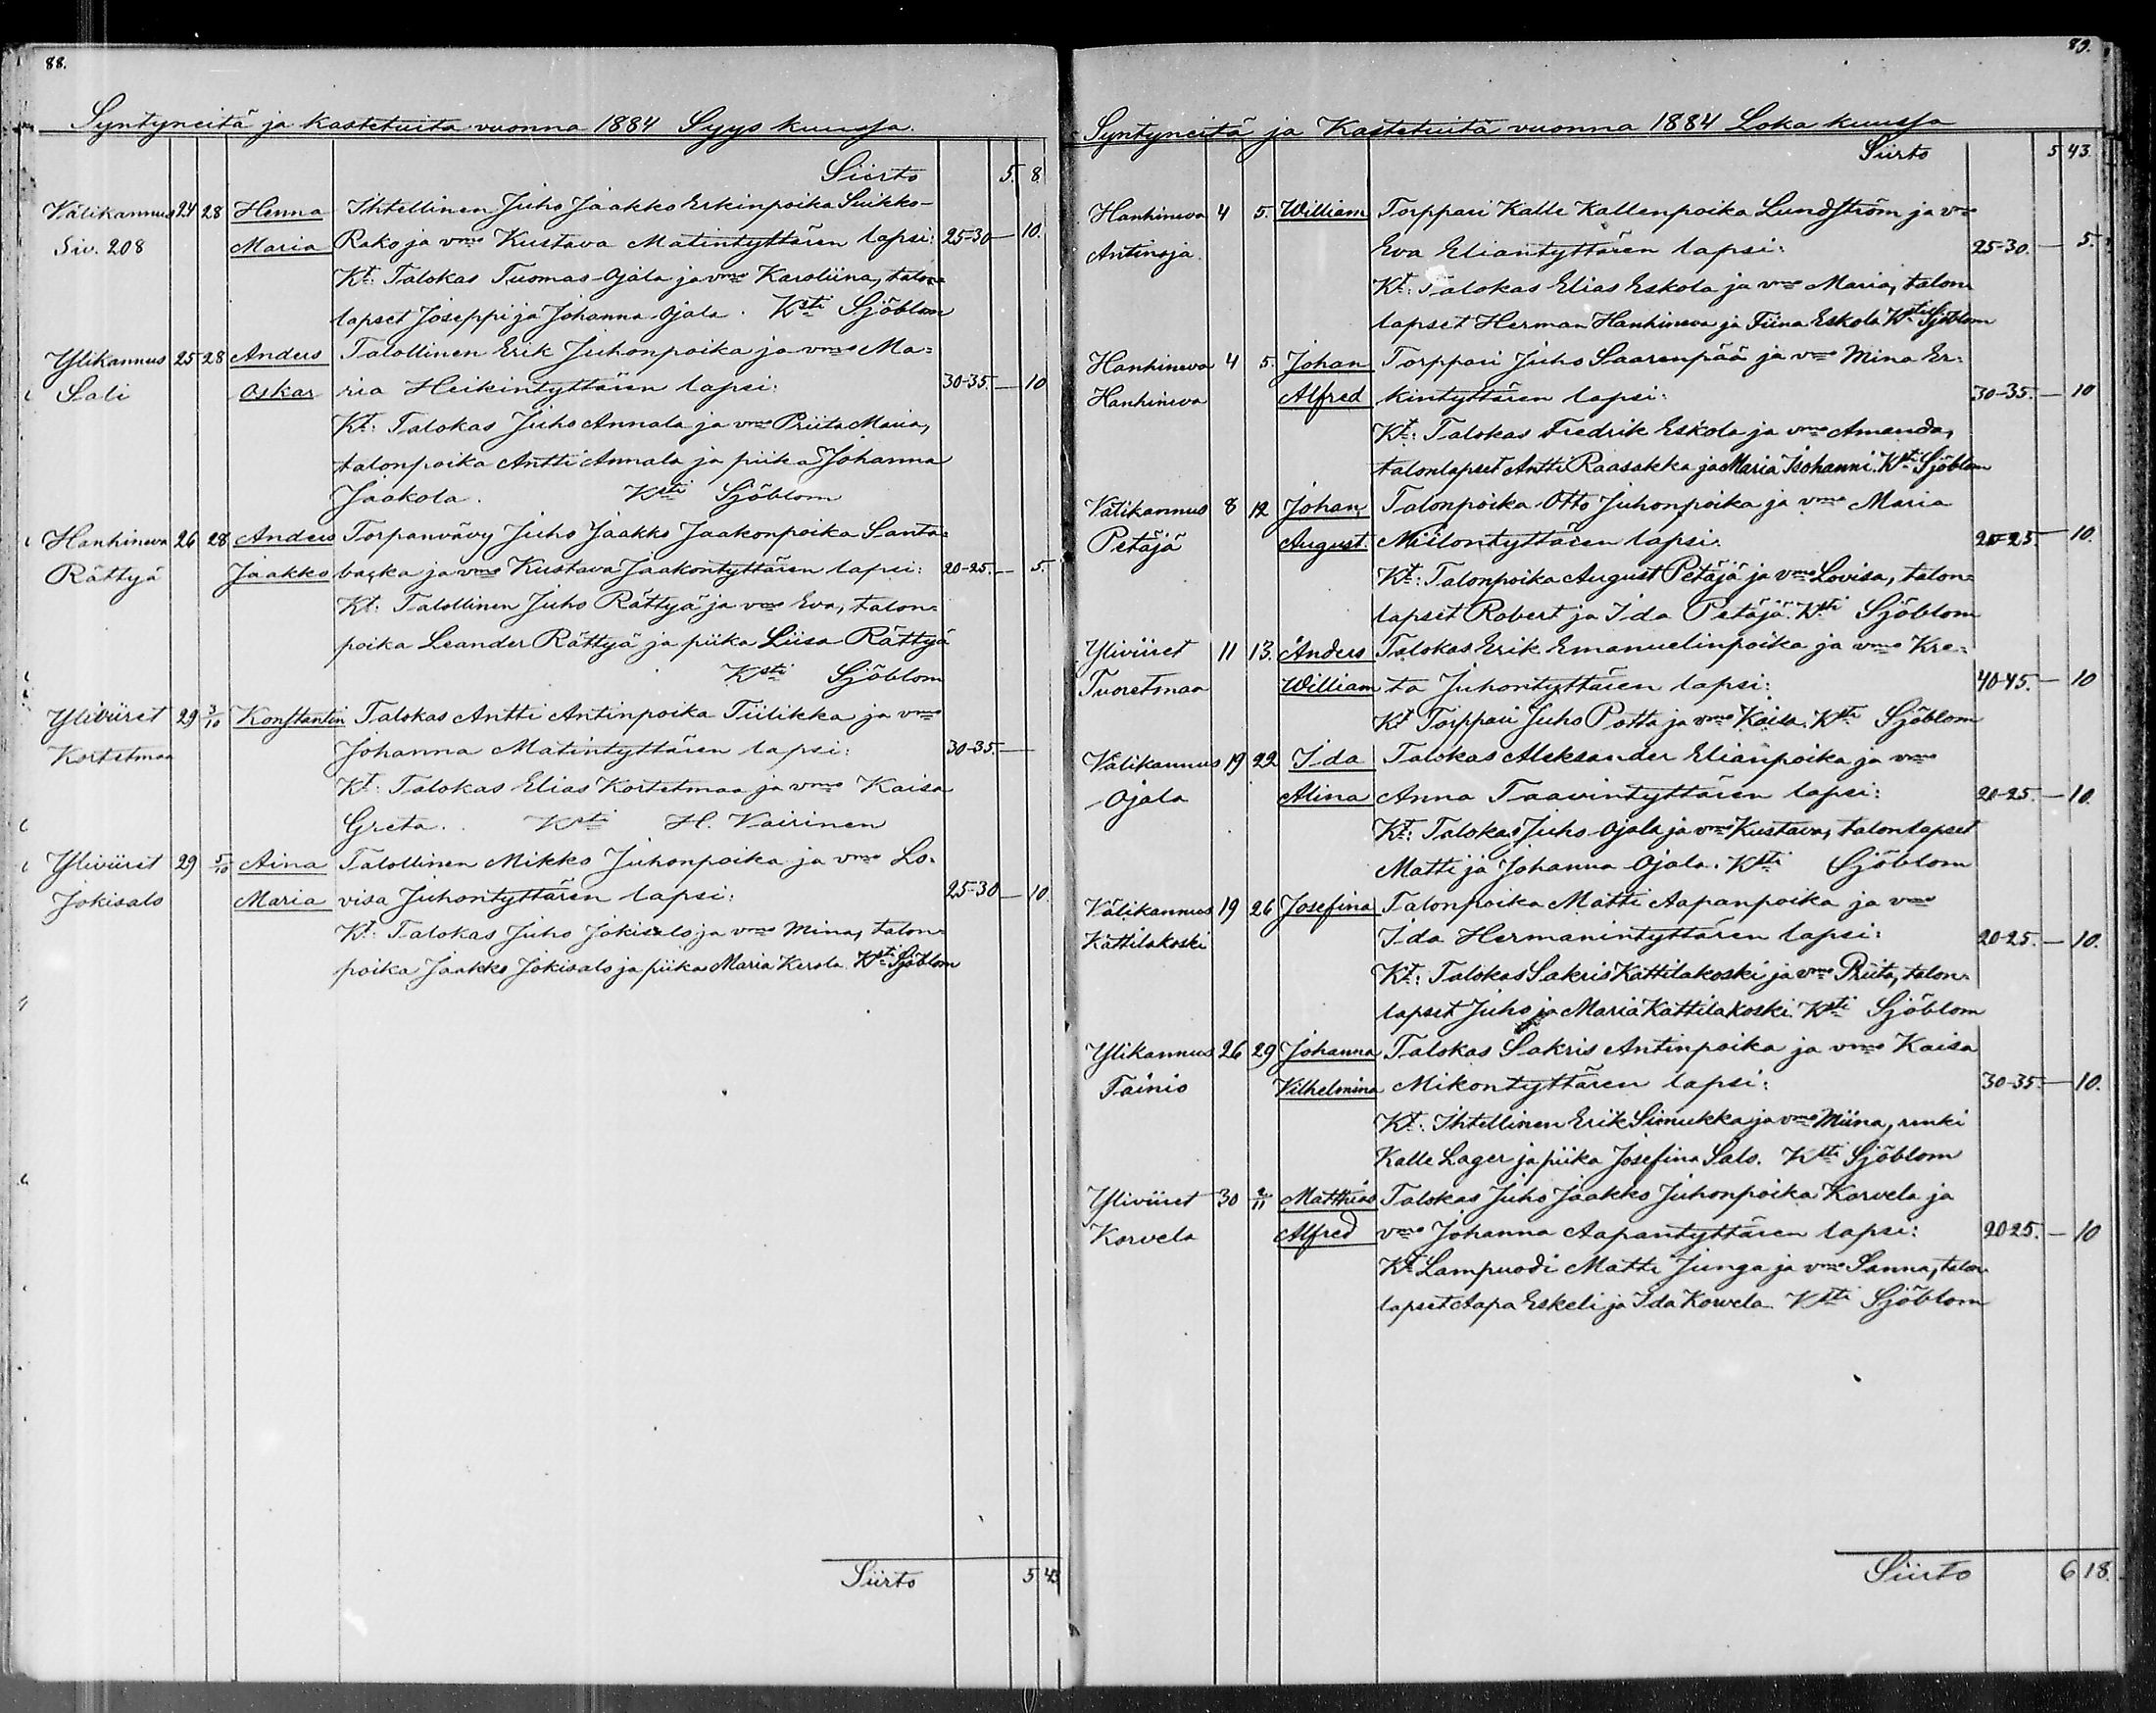 88.
Syntyneitä ja kastetuita vuonna 1884 Syys kuussa.
Siirto 5. 8.
Välikannus 24 28 Henna Ihtellinen Juho Jaakko Erkinpoika Suikko-
Siv. 208 Maria Rako ja vmo Kustava Matintyttären lapsi: 25-30 — 10.
Kt: Talokas Tuomas Ojala ja vmo Karoliina, talon=
lapset Joseppi ja Johanna Ojala. Ksti Sjöblom
Ylikannus 25 28 Anders Talollinen Erik Juhonpoika ja vmo Ma=
Sali Oskar ria Heikintyttären lapsi: 30-35. — 10
Kt: Talokas Juho Annala ja vmo Priita Maria,
talonpoika Antti Annala ja piika Johanna
Jaakola. Ksti Sjöblom
Hanhineva 26 28 Anders Torpanvävy Juho Jaakko Jaakonpoika Santa=
Rättyä Jaakko backa ja vmo Kustava Jaakontyttären lapsi: 20-25. — 5.
Kt: Talollinen Juho Rättyä ja vmo Eva, talon=
poika Leander Rättyä ja piika Liisa Rättyä
Ksti Sjöblom
Yliviiret 29 3/10 Konstantin Talokas Antti Antinpoika Tiilikka ja vmo
Kortetmaa Johanna Matintyttären lapsi: 30-35. —
Kt: Talokas Elias Kortetmaa ja vmo Kaisa
Greta. Ksti H. Vairinen
Yliviiret 29 5/10 Aina Talollinen Mikko Juhonpoika ja vmo Lo=
Jokisalo Maria visa Juhontyttären lapsi: 25-30 — 10.
Kt: Talokas Juho Jokisalo ja vmo Mina, talon=
poika Jaakko Jokisalo ja piika Maria Kerola. Ksti Sjöblom
Siirto 5 43
89.
Syntyneitä ja Kastetuitä vuonna 1884 Loka kuussa
Siirto 5 43.
Hanhineva 4 5. William Torppari Kalle Kallenpoika Lundström ja vmo
Antinoja. Eva Eliantyttären lapsi: 25-30. — 5.
Kt: Talokas Elias Eskola ja vmo Maria, talon
lapset Herman Hanhineva ja Fiina Eskola Ksti Sjöblom
Hanhineva 4 5. Johan Torppari Juho Saarenpää ja vmo Mina Er=
Hanhineva Alfred kintyttären lapsi: 30-35. — 10
Kt: Talokas Fredrik Eskola ja vmo Amanda,
talonlapset Antti Raasakka ja Maria Isohanni. Ksti Sjöblom
Välikannus 8 12 Johan, Talonpoika Otto Juhonpoika ja vmo Maria
Petäjä August. Miilontyttären lapsi. 20-25. — 10.
Kt: Talonpoika August Petäjä ja vmo Lovisa, talon=
lapset Robert ja Ida Petäjä. Ksti Sjöblom
Yliviiret 11 13. Anders Talokas Erik Emanuelinpoika ja vmo Kre=
Tuoretmaa William ta Juhontyttären lapsi: 40-45. — 10
Kt Torppari Juho Potta ja vmo Kaisa. Ksti Sjöblom
Välikannus 19 22 Ida Talokas Aleksander Elianpoika ja vmo
Ojala Alina Anna Taavintyttären lapsi: 20-25. — 10.
Kt: Talokas Juho Ojala ja vmo Kustava, talonlapset
Matti ja Johanna Ojala. Ksti Sjöblom
Välikannus 19 26 Josefina Talonpoika Matti Aapanpoika ja vmo
Kattilakoski Ida Hermanintyttären lapsi: 20-25. — 10.
Kt: Talokas Sakris Kattilakoski ja vmo Priita, talon=
lapset Juho ja Maria Kattilakoski. Ksti Sjöblom
Ylikannus 26 29 Johanna Talokas Sakris Antinpoika ja vmo Kaisa
Tainio Vilhelmina Mikontyttären lapsi: 30-35. — 10.
Kt: Ihtellinen Erik Simukka ja vmo Miina, renki
Kalle Lager ja piika Josefina Salo. Ksti Sjöblom
Yliviiret 30 2/11 Matthias Talokas Juho Jaakko Juhonpoika Korvela ja
Korvela Alfred vmo Johanna Aapantyttären lapsi: 20-25. — 10
Kt Lampuodi Matti Junga ja vmo Sanna, talon
lapset Aapa Eskeli ja Ida Korvela. Ksti Sjöblom
Siirto 6 18.